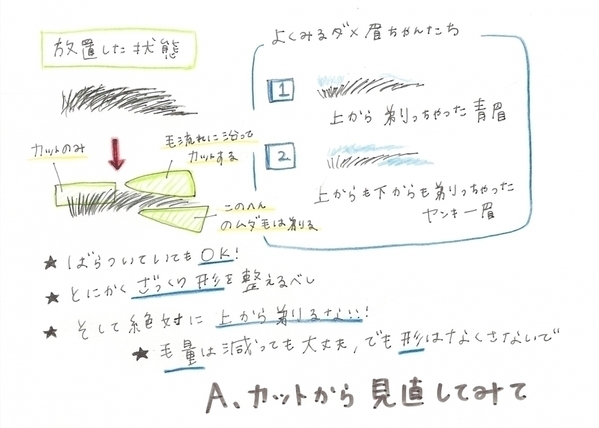 放置した状態
カットのみ
毛流れに沿って
カットする
このへん
のムダ毛は剃る
よくみるダメ眉ちゃんたち
1
上から剃りっちゃった青眉
2
上からも下からも剃りっちゃった
ヤンキー眉
★ ばらついていてもOK!
★ とにかくざっくり形を整えるべし
★ そして絶対に上から剃りるない!
★ 毛量は減っても大丈夫、でも形はなくさないで
A、カットから見直してみて